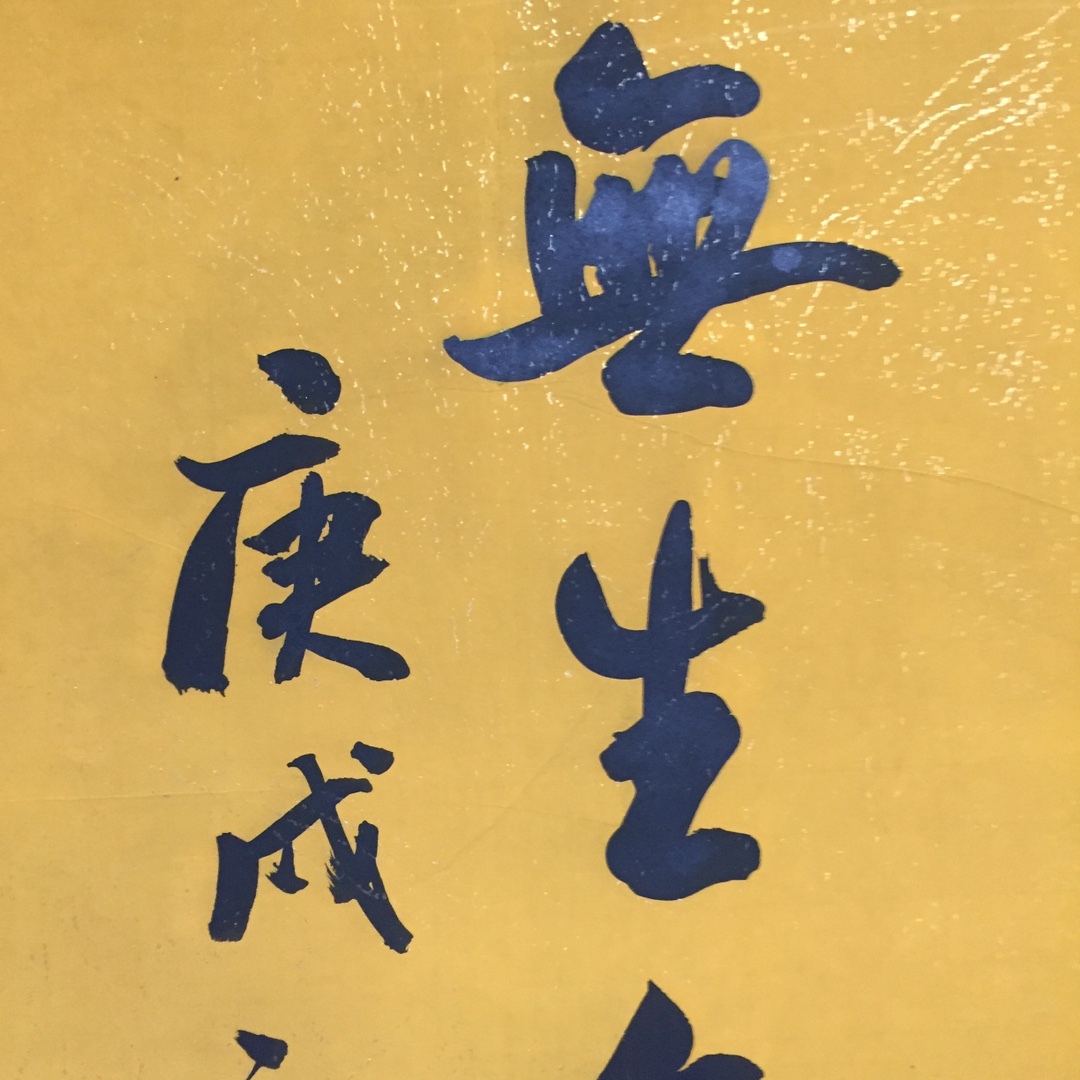 無生
庚戌